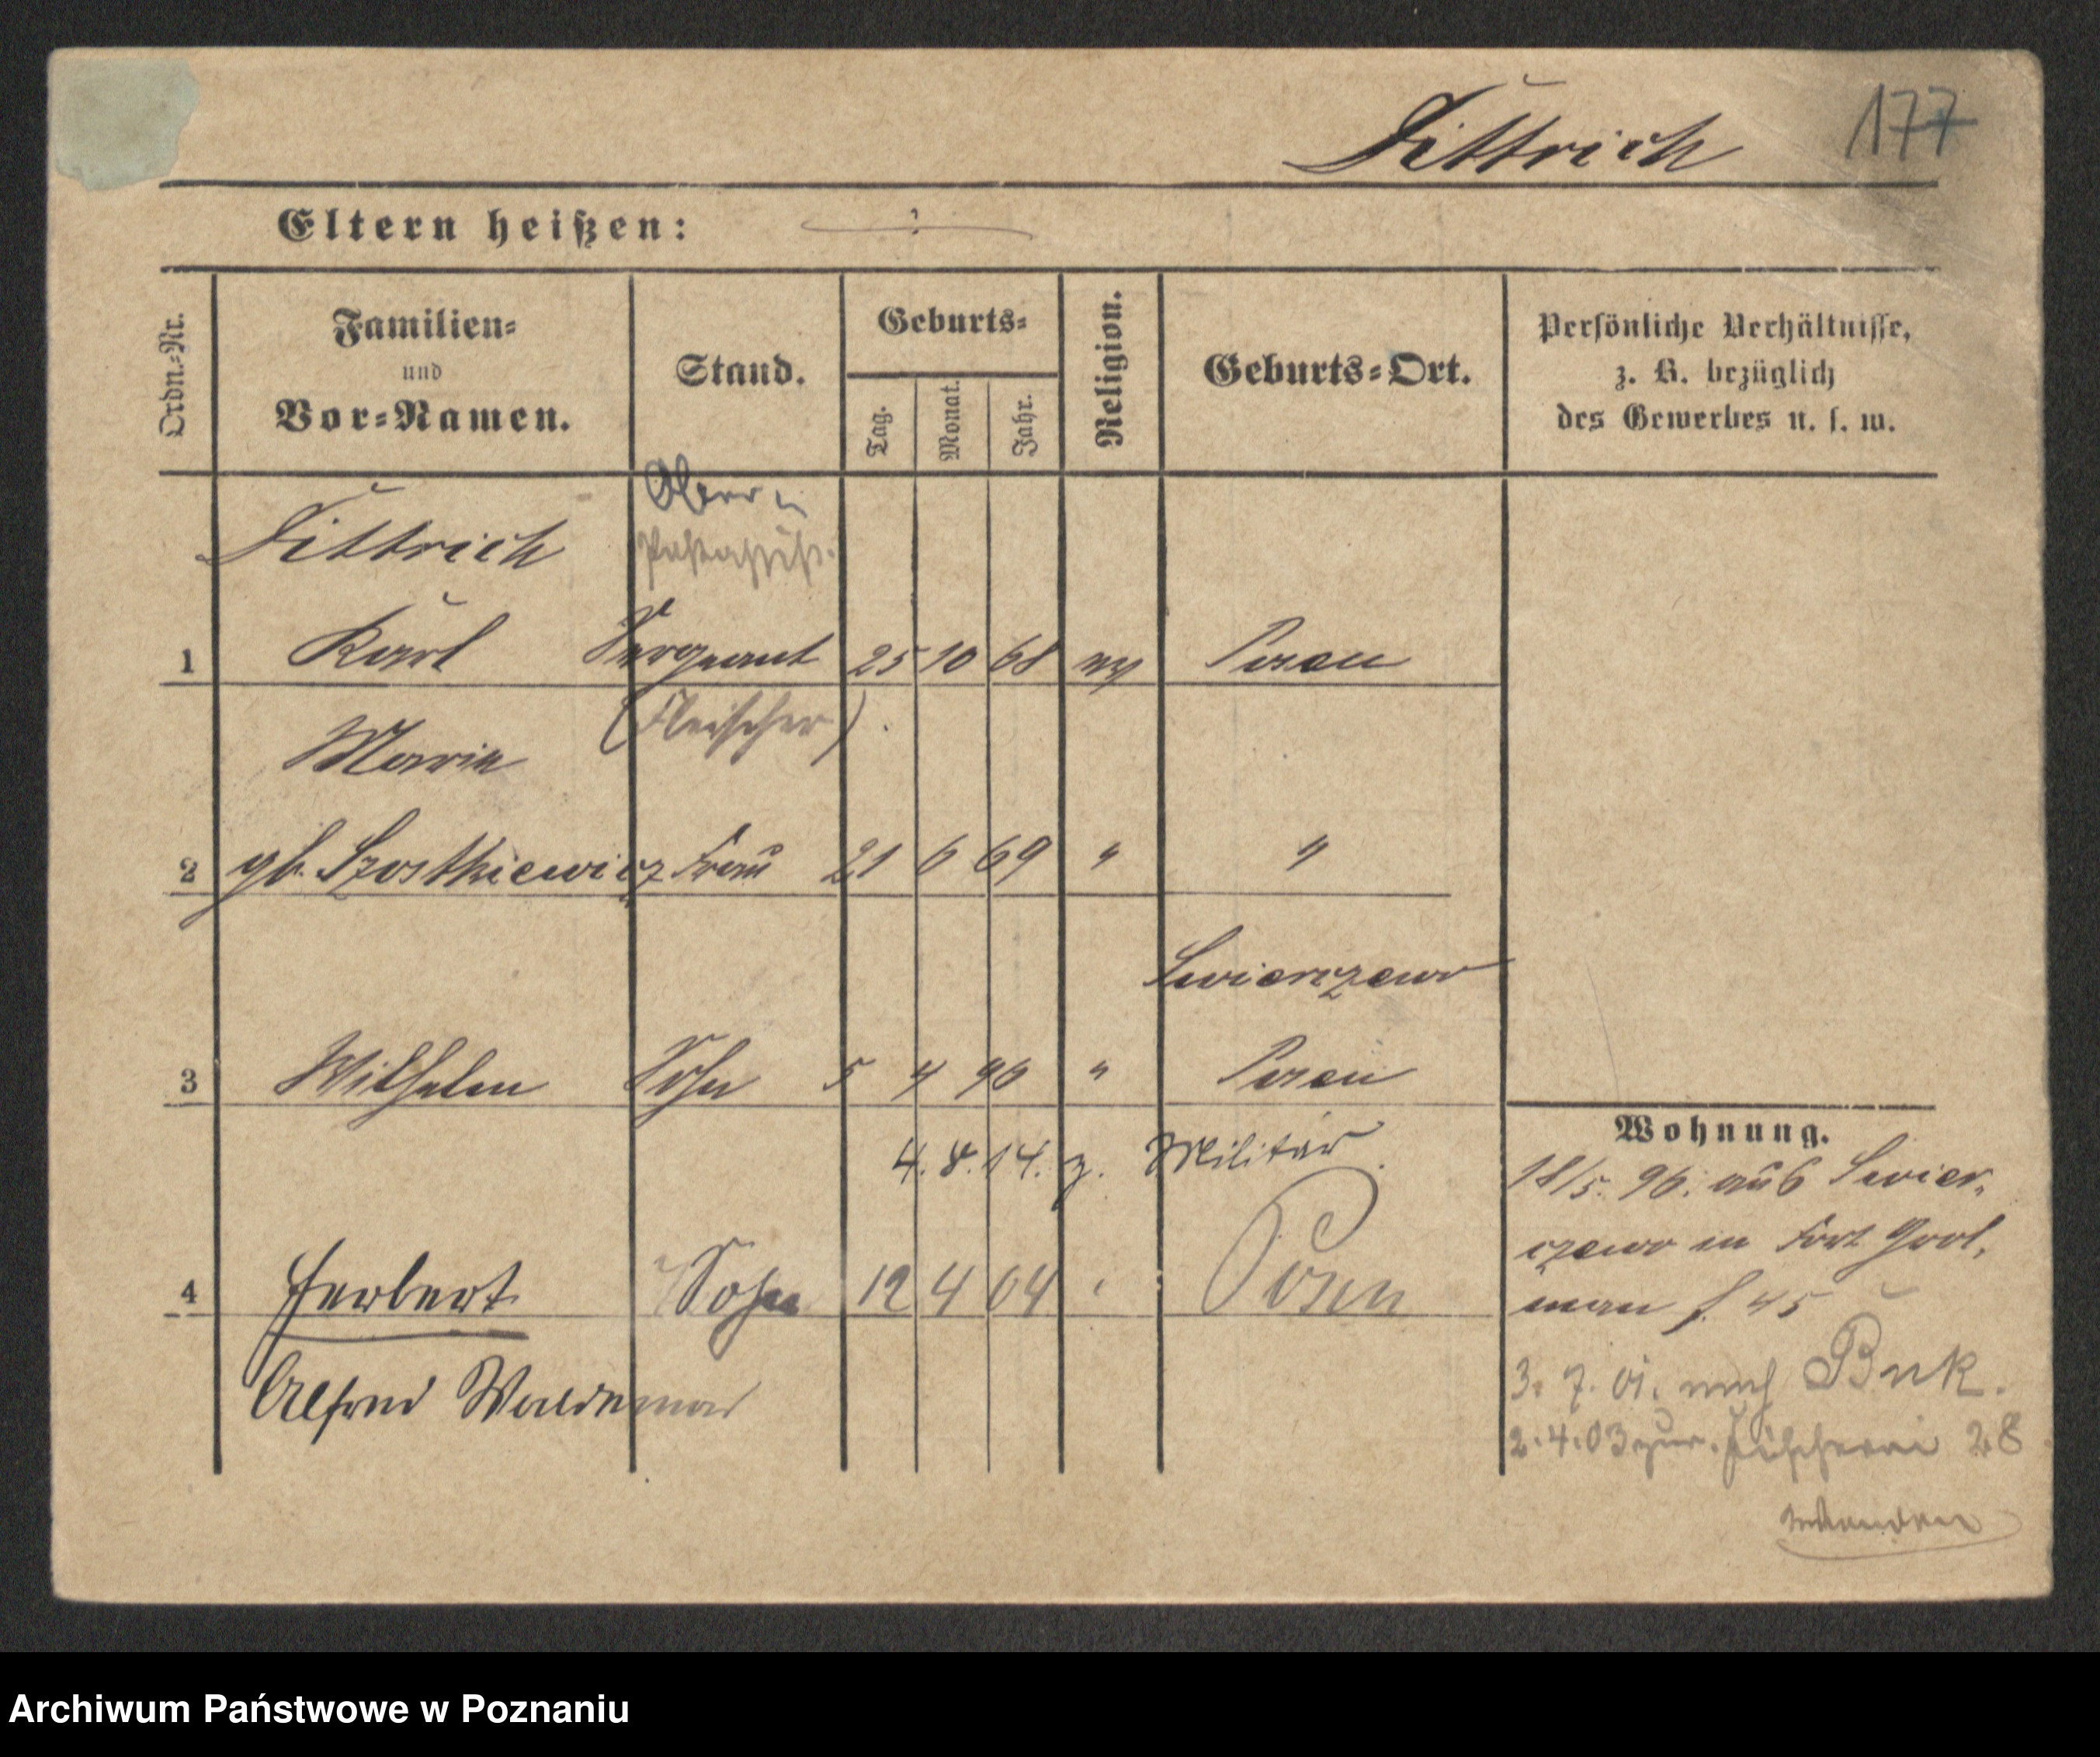 Dittrich 177
Eltern heißen: ?
Ordn.-Nr.
Familien-
und
Vor-Namen.
Stand.
Geburts-
Tag.
Monat.
Jahr.
Religion.
Geburts-Ort.
Persönliche Verhältnisse,
z. B. bezüglich
des Gewerbes u. s. w.
Ober
Dittrich Postassist.
1 Karl Sergeant 25 10 68 ev Posen
Marie (Fleischer)
2 gb. Szostkiewicz Frau 21 6 69 " "
Swierczewo
3 Wilhelm Sohn 5 4 96 " Posen
4. 8. 14. z. Militär
4 Herbert Sohn 12 4 04 " Posen
Alfred Waldemar
Wohnung.
18/5. 96. aus Swier-
czewo in Fort Grol-
man f. 45
3. 7. 01. nach Buk.
2. 4. 03 zur. 28
Archiwum Państwowe w Poznaniu